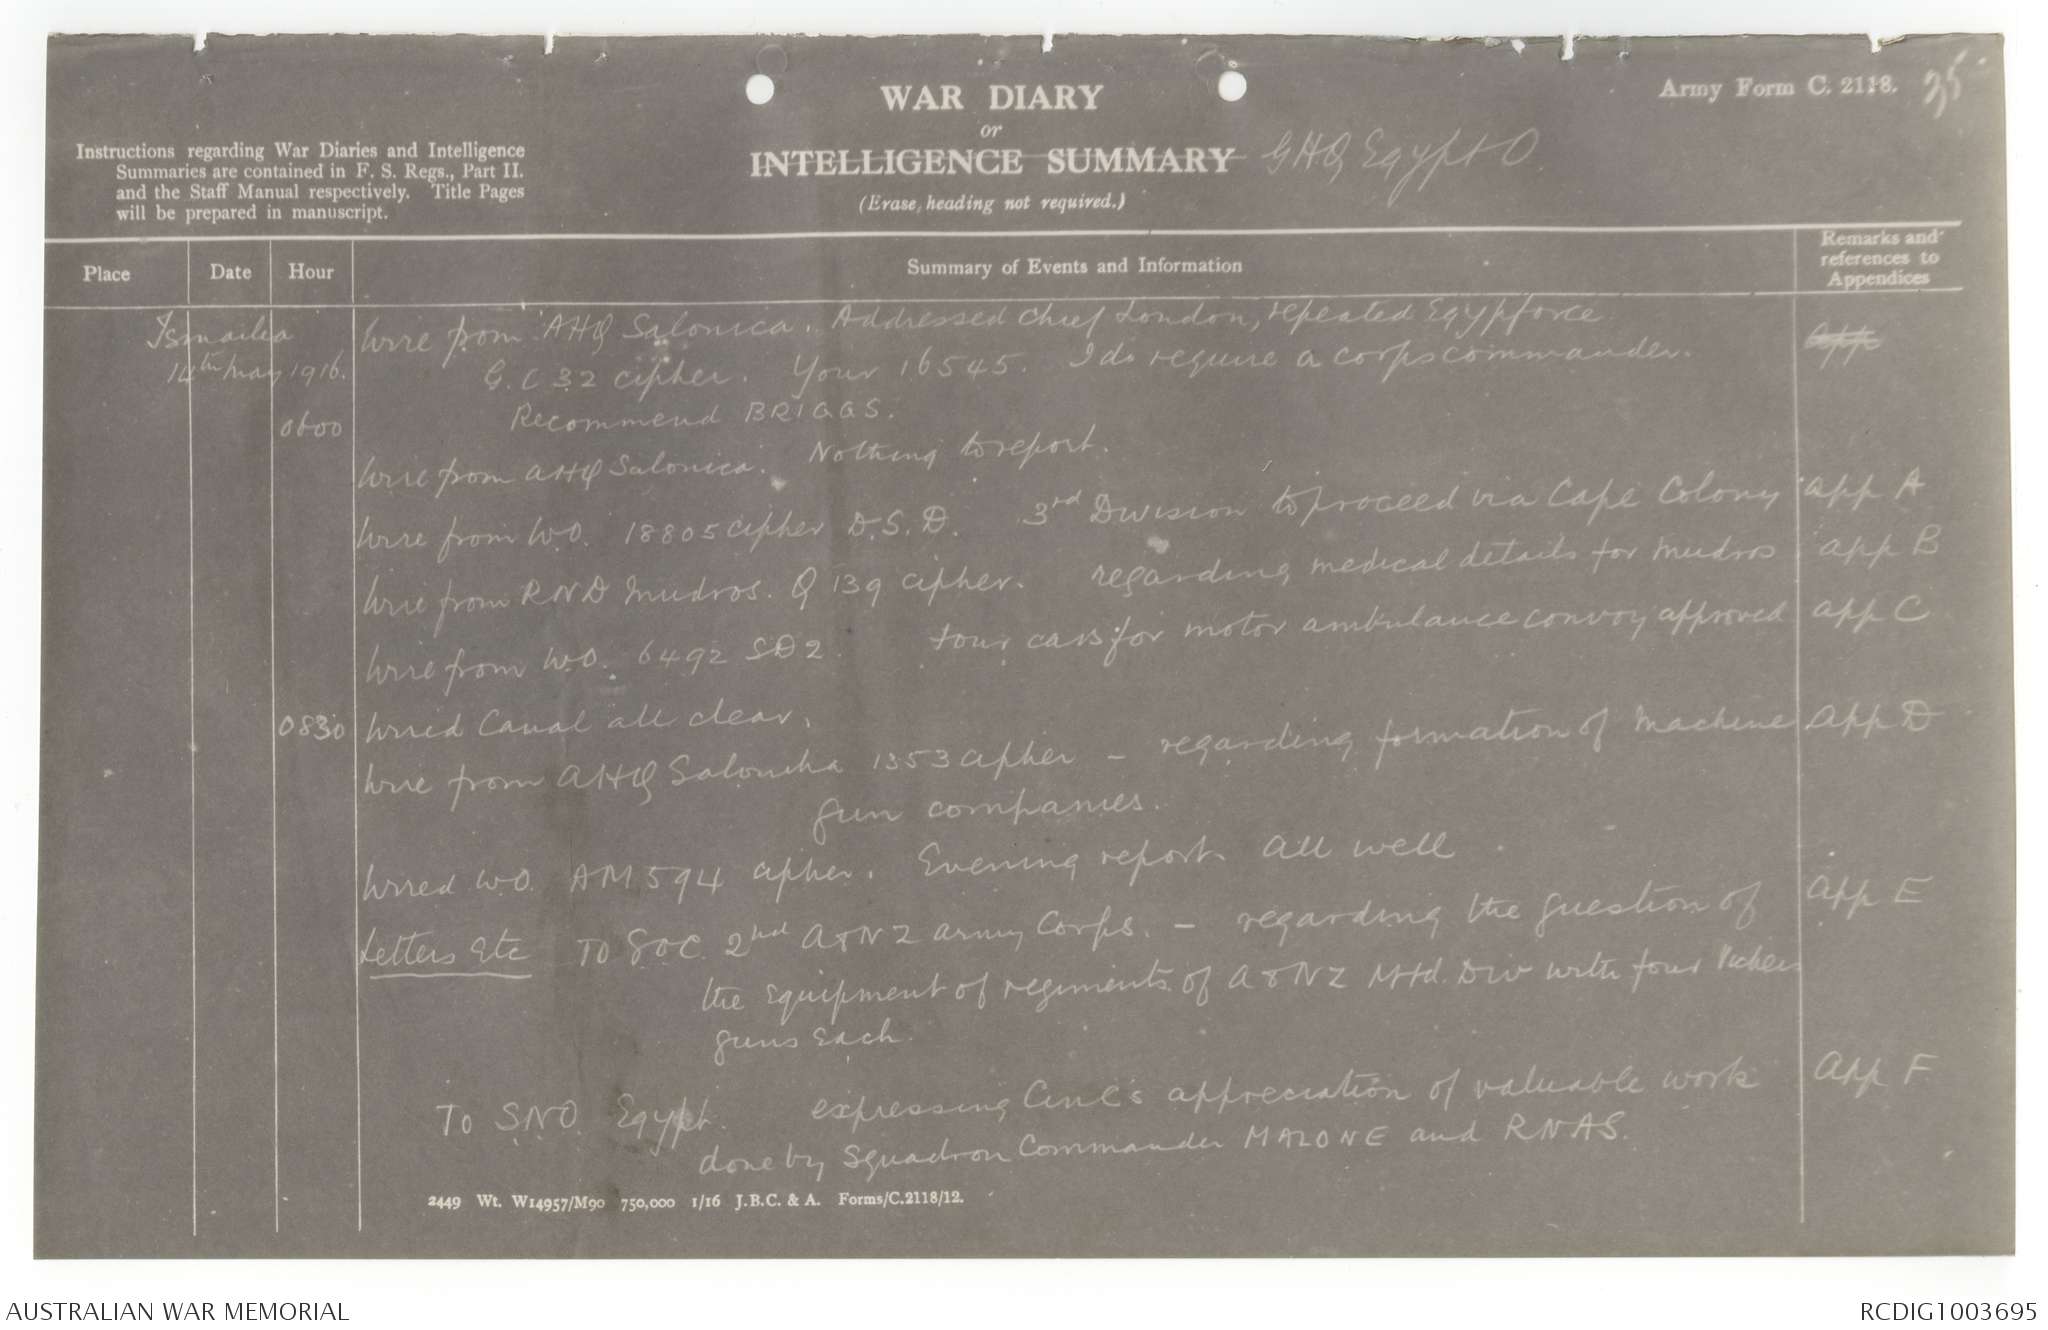 Army Form C. 2118. 35
WAR DIARY
or
INTELLIGENCE SUMMARY GHQ Egypt O
(Erase heading not required.)
Instructions regarding War Diaries and Intelligence
Summaries are contained in F. S. Regs., Part II.
and the Staff Manual respectively. Title Pages
will be prepared in manuscript.
Place Date Hour Summary of Events and Information Remarks and references to Appendices
Ismailia Wire from AHQ Salonica. Addressed Chief London, repeated Egypforce App
14th May 1916. G.C 32 cipher. Your 16545. I do require a corps commander.
0600 Recommend BRIGGS.
Wire from AHQ Salonica. Nothing to report.
Wire from W.O. 18805 cipher D.S.D. 3rd Division to proceed via Cape Colony App A
Wire from RND Mudros. Q 139 cipher. regarding medical details for Mudros App B
Wire from W.O. 6492 SD2. four cars for motor ambulance convoy approved App C
0830 Wired Canal all clear.
Wire from AHQ Salonika 1353 cipher - regarding formation of Machine App D
gun companies.
Wired W.O. AM594 cipher. Evening report. All well.
Letters Etc To GOC 2nd A&NZ Army Corps. - regarding the question of App E
the equipment of regiments of A&NZ Mtd. Div with four Vickers
guns each.
To S.N.O. Egypt. expressing CinC's appreciation of valuable work App F
done by Squadron Commander MALONE and RNAS.
2449 Wt. W14957/M90 750,000 1/16 J.B.C. & A. Forms/C.2118/12.
AUSTRALIAN WAR MEMORIAL RCDIG1003695